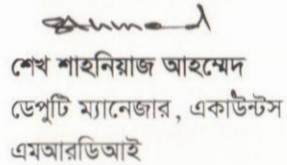 Ahmed
শেখ শাহনিয়াজ আহম্মেদ
ডেপুটি ম্যানেজার, একাউন্টস
এমআরডিআই